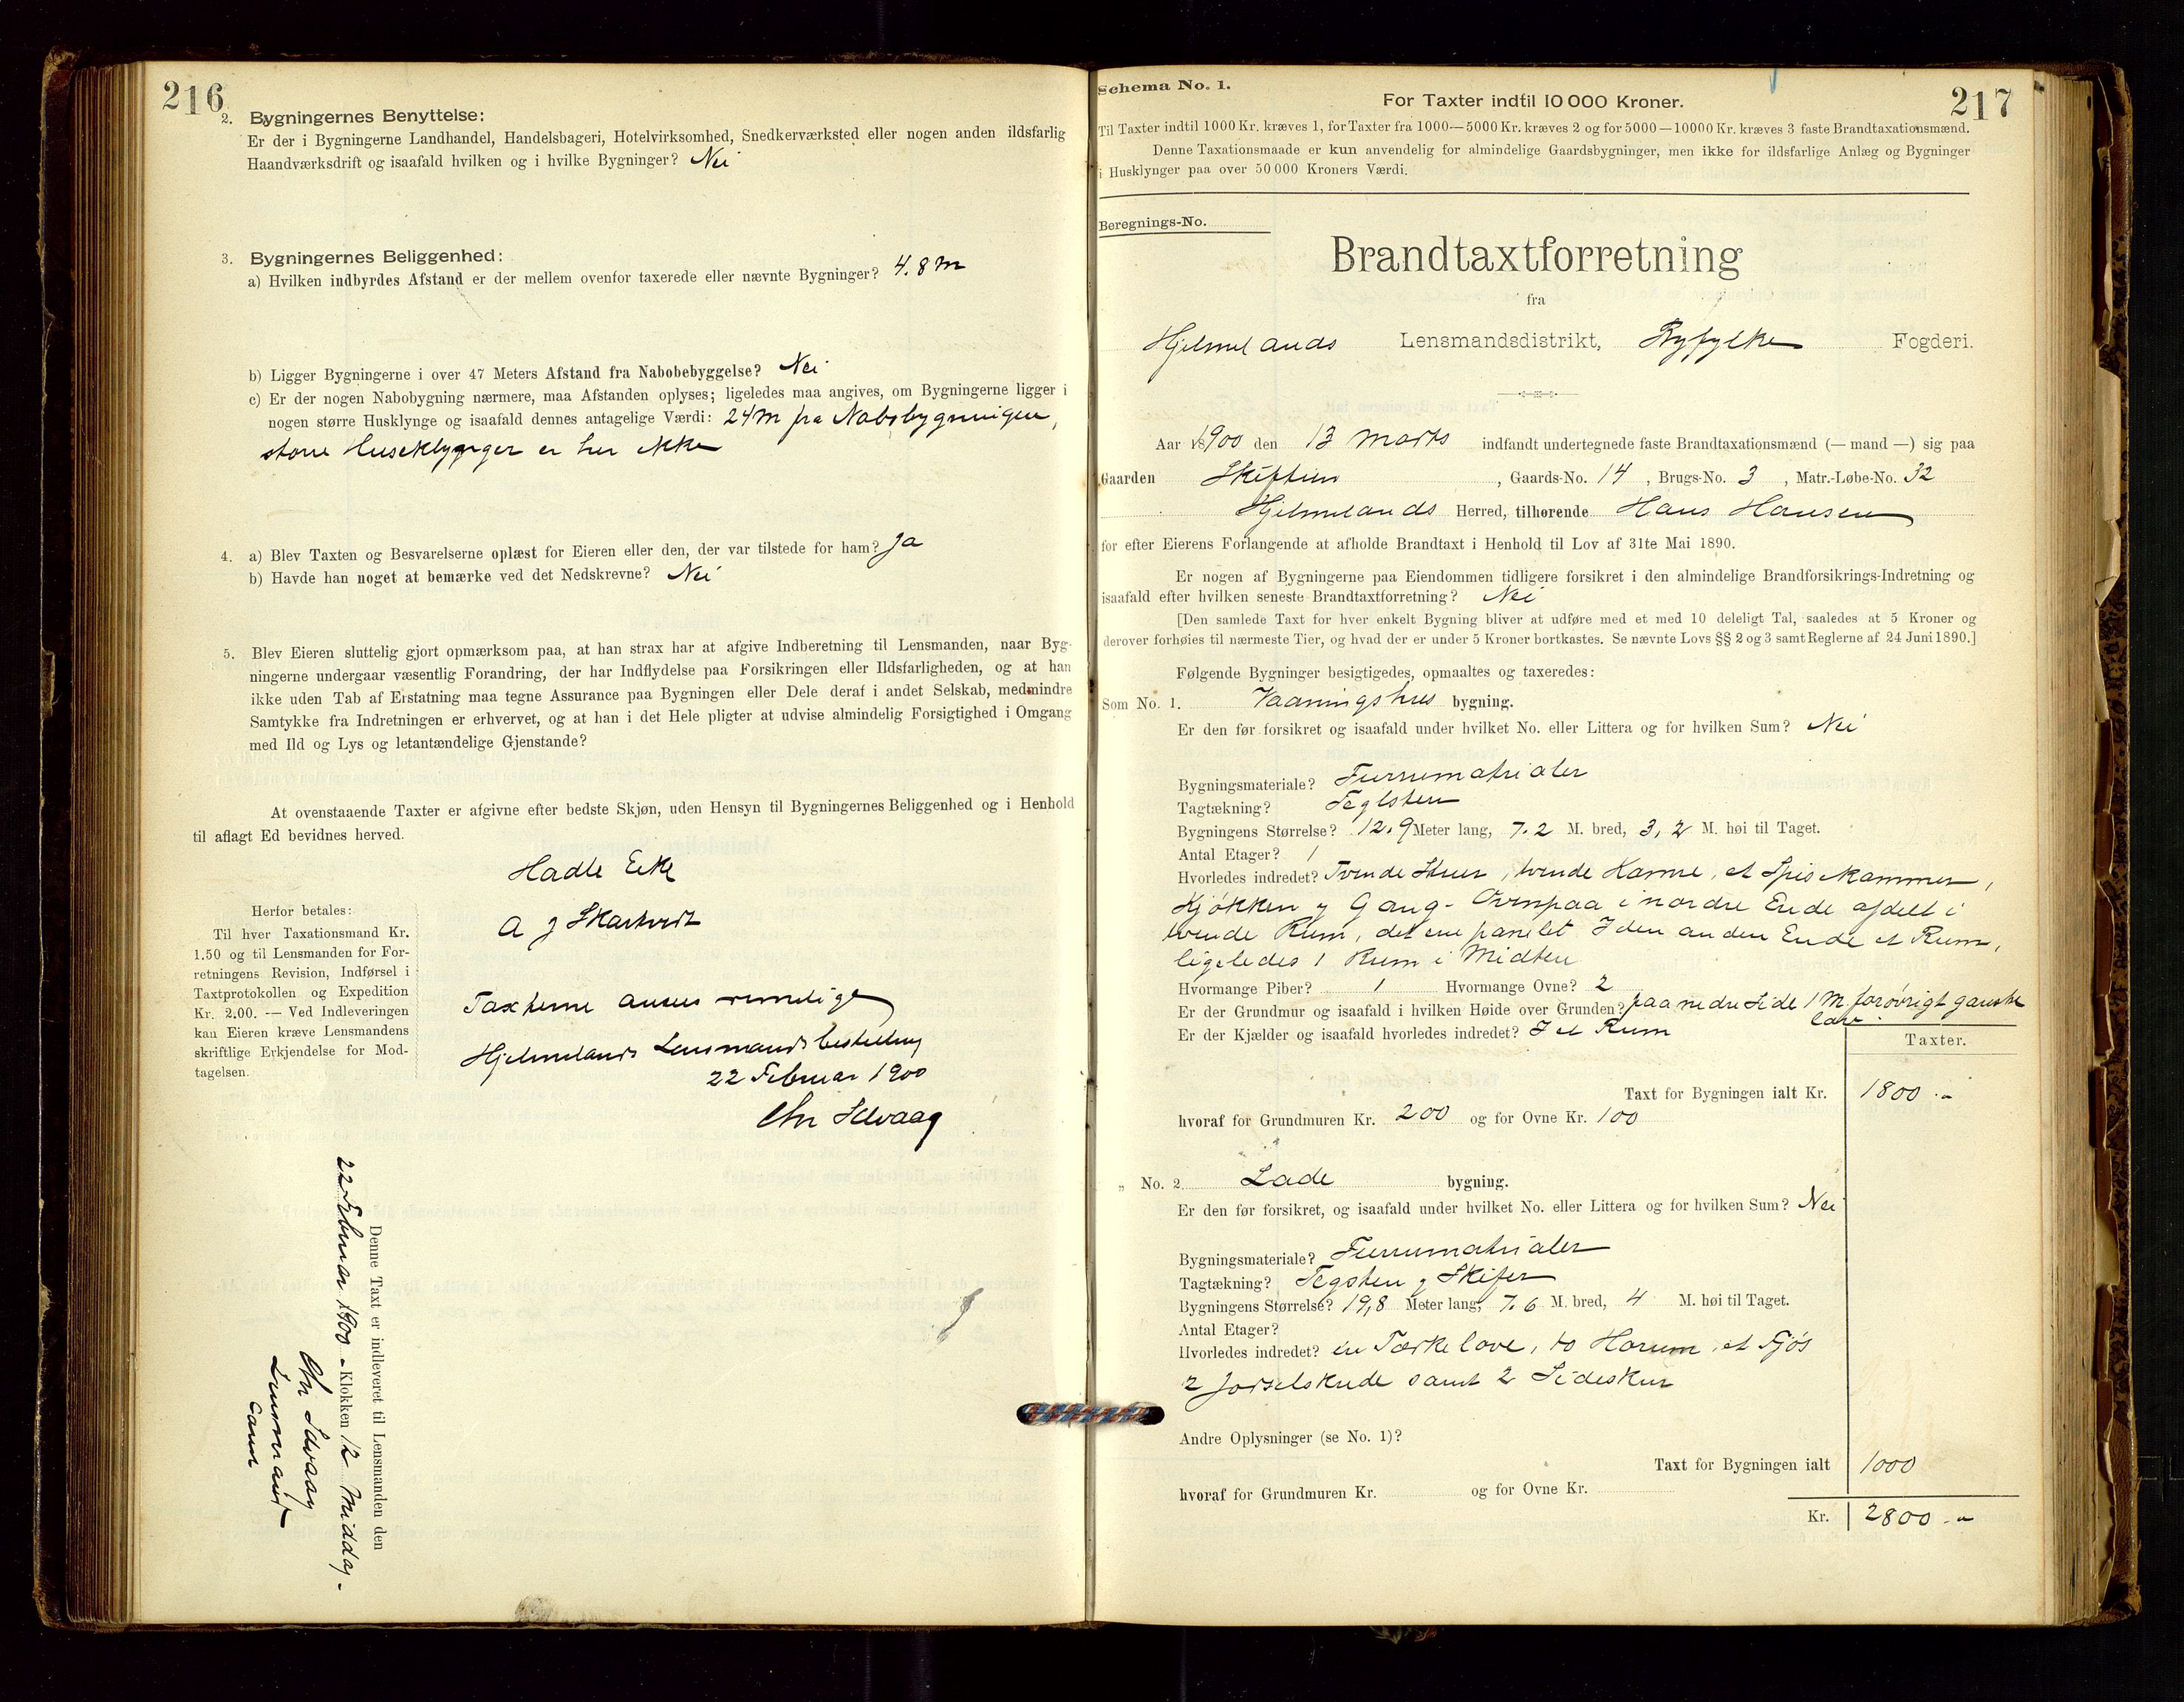 216
2. Bygningernes Benyttelse:
Er der i Bygningerne Landhandel, Handelsbageri, Hotelvirksomhed, Snedkerværksted eller nogen anden ildsfarlig
Haandværksdrift og isaafald hvilken og i hvilke Bygninger? Nei
3. Bygningernes Beliggenhed:
a) Hvilken indbyrdes Afstand er der mellem ovenfor taxerede eller nævnte Bygninger? 4.8 m
b) Ligger Bygningerne i over 47 Meters Afstand fra Nabobebyggelse? Nei
c) Er der nogen Nabobygning nærmere, maa Afstanden oplyses; ligeledes maa angives, om Bygningerne ligger i
nogen større Husklynge og isaafald dennes antagelige Værdi: 24 m fra Nabobygningen,
større Huseklynger er her ikke
4. a) Blev Taxten og Besvarelserne oplæst for Eieren eller den, der var tilstede for ham? Ja
b) Havde han noget at bemærke ved det Nedskrevne? Nei
5. Blev Eieren sluttelig gjort opmærksom paa, at han strax har at afgive Indberetning til Lensmanden, naar Byg-
ningerne undergaar væsentlig Forandring, der har Indflydelse paa Forsikringen eller Ildsfarligheden, og at han
ikke uden Tab af Erstatning maa tegne Assurance paa Bygningen eller Dele deraf i andet Selskab, medmindre
Samtykke fra Indretningen er erhvervet, og at han i det Hele pligter at udvise almindelig Forsigtighed i Omgang
med Ild og Lys og letantændelige Gjenstande?
At ovenstaaende Taxter er afgivne efter bedste Skjøn, uden Hensyn til Bygningernes Beliggenhed og i Henhold
til aflagt Ed bevidnes herved.
Hadle Eike
A J Skartvedt
Herfor betales:
Til hver Taxationsmand Kr.
1.50 og til Lensmanden for For-
retningens Revision, Indførsel i
Taxtprotokollen og Expedition
Kr. 2.00. — Ved Indleveringen
kan Eieren kræve Lensmandens
skriftlige Erkjendelse for Mod-
tagelsen.
Taxterne ansees rimelige
Hjelmelands Lensmandsbestilling
22 Februar 1900
Chr Selvaag
Denne Taxt er indleveret til Lensmanden den
22 Februar 1900 - Klokken 12 Middag -
Chr Selvaag
Lensmand
const
217
Schema No. 1.
For Taxter indtil 10 000 Kroner.
Til Taxter indtil 1000 Kr. kræves 1, for Taxter fra 1000—5000 Kr. kræves 2 og for 5000—10000 Kr. kræves 3 faste Brandtaxationsmænd.
Denne Taxationsmaade er kun anvendelig for almindelige Gaardsbygninger, men ikke for ildsfarlige Anlæg og Bygninger
i Husklynger paa over 50 000 Kroners Værdi.
Beregnings-No.
Brandtaxtforretning
fra
Hjelmelands Lensmandsdistrikt, Ryfylke Fogderi.
Aar 1900 den 13 Marts indfandt undertegnede faste Brandtaxationsmænd (— mand —) sig paa
Gaarden Skiftun, Gaards-No. 14, Brugs-No. 3, Matr.-Løbe-No. 32
Hjelmelands Herred, tilhørende Hans Hansen
for efter Eierens Forlangende at afholde Brandtaxt i Henhold til Lov af 31te Mai 1890.
Er nogen af Bygningerne paa Eiendommen tidligere forsikret i den almindelige Brandforsikrings-Indretning og
isaafald efter hvilken seneste Brandtaxtforretning? Nei
[Den samlede Taxt for hver enkelt Bygning bliver at udføre med et med 10 deleligt Tal, saaledes at 5 Kroner og
derover forhøies til nærmeste Tier, og hvad der er under 5 Kroner bortkastes. Se nævnte Lovs §§ 2 og 3 samt Reglerne af 24 Juni 1890.]
Følgende Bygninger besigtigedes, opmaaltes og taxeredes:
Som No. 1. Vaaningshus bygning.
Er den før forsikret og isaafald under hvilket No. eller Littera og for hvilken Sum? Nei
Bygningsmateriale? Furrumatrialer
Tagtækning? Teglsten
Bygningens Størrelse? 12.9 Meter lang, 7.2 M. bred, 3,2 M. høi til Taget.
Antal Etager? 1
Hvorledes indredet? Tvende Stuer, tvende Kamre, et Spiskammer,
Kjøkken og Gang. Ovenpaa i nordre Ende afdelt i
tvende Rum, det ene panelet I den anden Ende et Rum,
ligeledes 1 Rum i Midten
Hvormange Piber? 1 Hvormange Ovne? 2
Er der Grundmur og isaafald i hvilken Høide over Grunden? paa nedre Side 1 M. forøvrigt ganske
lav.
Er der Kjælder og isaafald hvorledes indredet? I et Rum
Taxter.
Taxt for Bygningen ialt Kr. 1800.-
hvoraf for Grundmuren Kr. 200 og for Ovne Kr. 100
„ No. 2. Lade bygning.
Er den før forsikret, og isaafald under hvilket No. eller Littera og for hvilken Sum? Nei
Bygningsmateriale? Furrumatrialer
Tagtækning? Tegsten og Skifer
Bygningens Størrelse? 19,8 Meter lang, 7.6 M. bred, 4 M. høi til Taget.
Antal Etager?
Hvorledes indredet? en Tærkelove, to Hørum, et Fjøs
2 samt 2 Sideskur
Andre Oplysninger (se No. 1)?
Taxt for Bygningen ialt 1000
hvoraf for Grundmuren Kr. og for Ovne Kr.
Kr. 2800.-